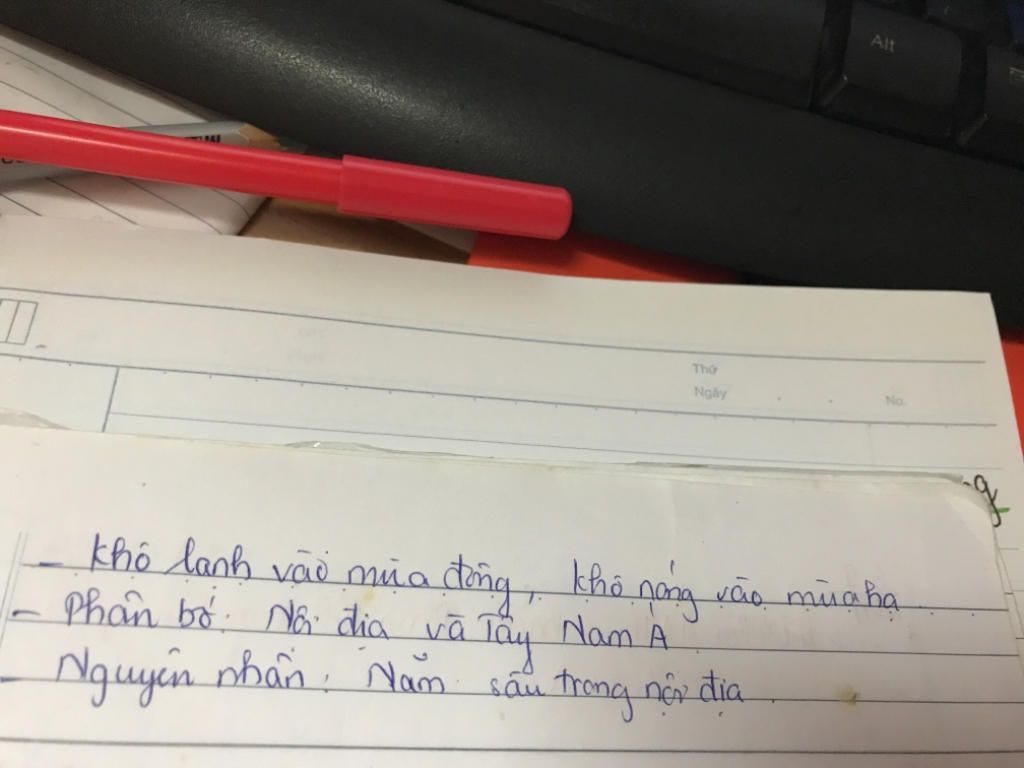 Alt
Thứ
Ngày
No.
g
- Khô lạnh vào mùa đông, khô nóng vào mùa hạ
- Phân bố: Nội địa và Tây Nam Á
- Nguyên nhân: Nằm sâu trong nội địa.